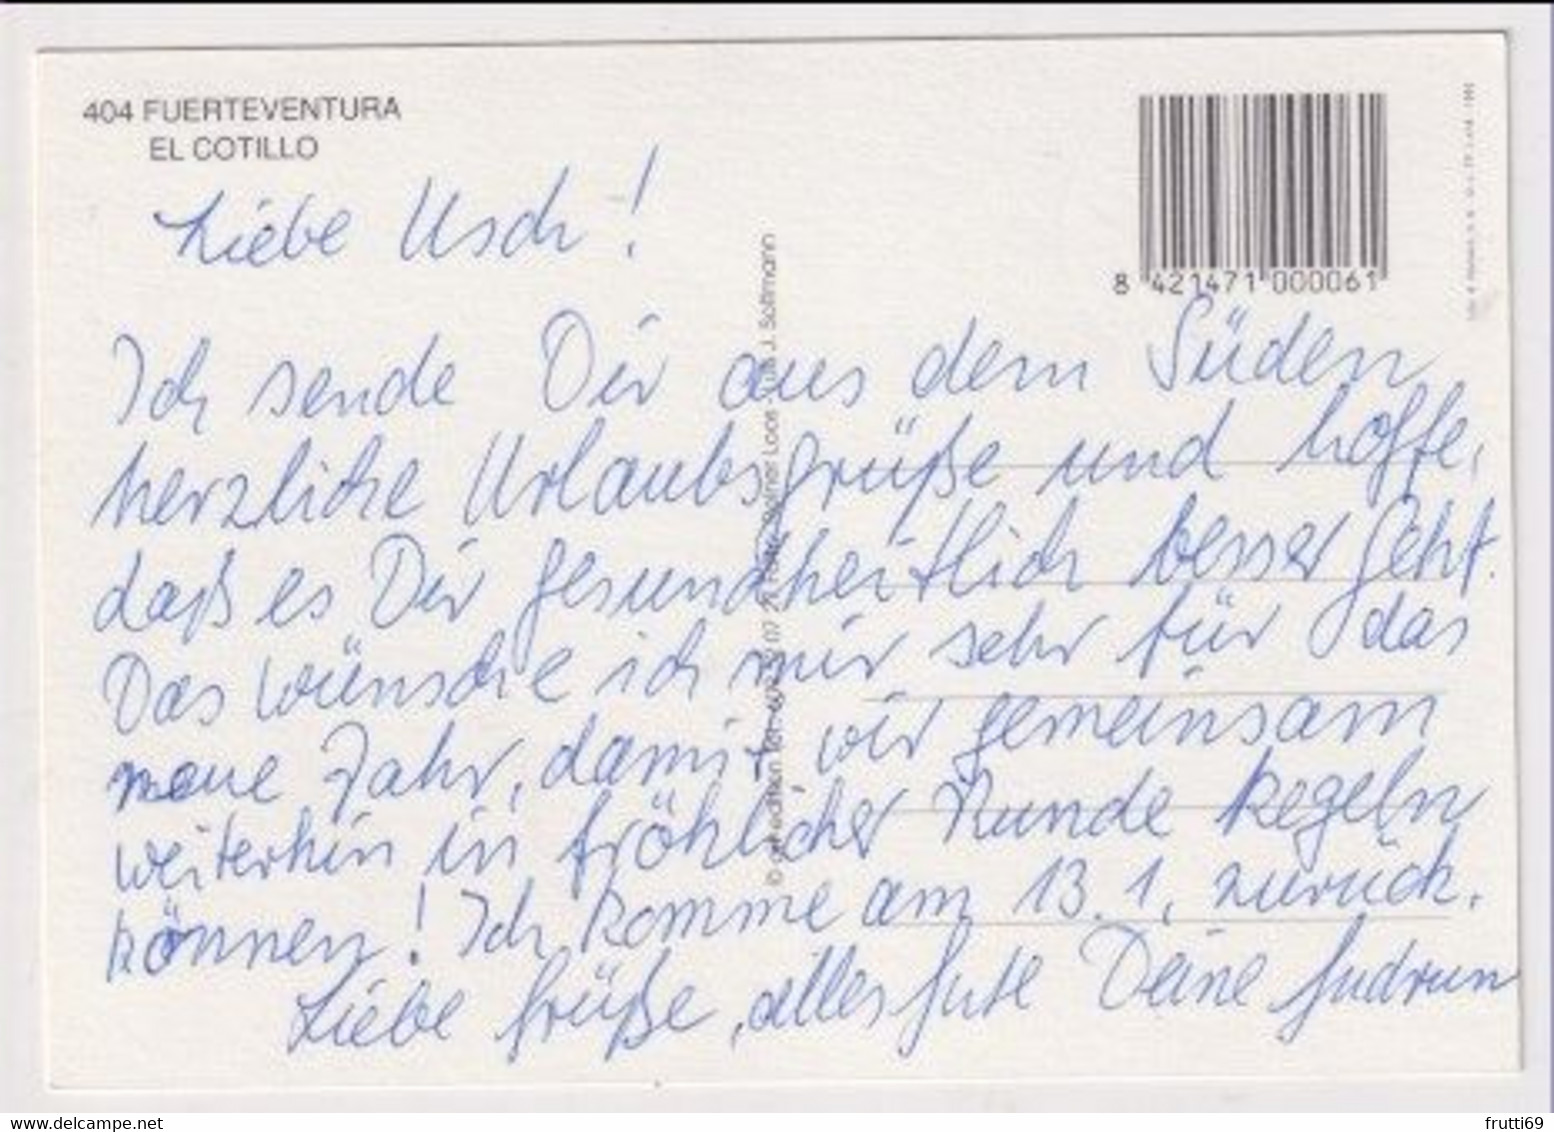 404 FUERTEVENTURA
EL COTILLO
8 421471 000061
Liebe Usch!
Ich sende Dir aus dem Süden
herzliche Urlaubsgrüße und hoffe,
daß es Dir gesundheitlich besser geht.
Das wünsche ich mir sehr für das
neue Jahr, damit wir gemeinsam
weiterhin in fröhlicher Runde kegeln
können! Ich komme am 13.1. zurück.
Liebe Grüße, alles Gute Deine Gudrun
frutti69